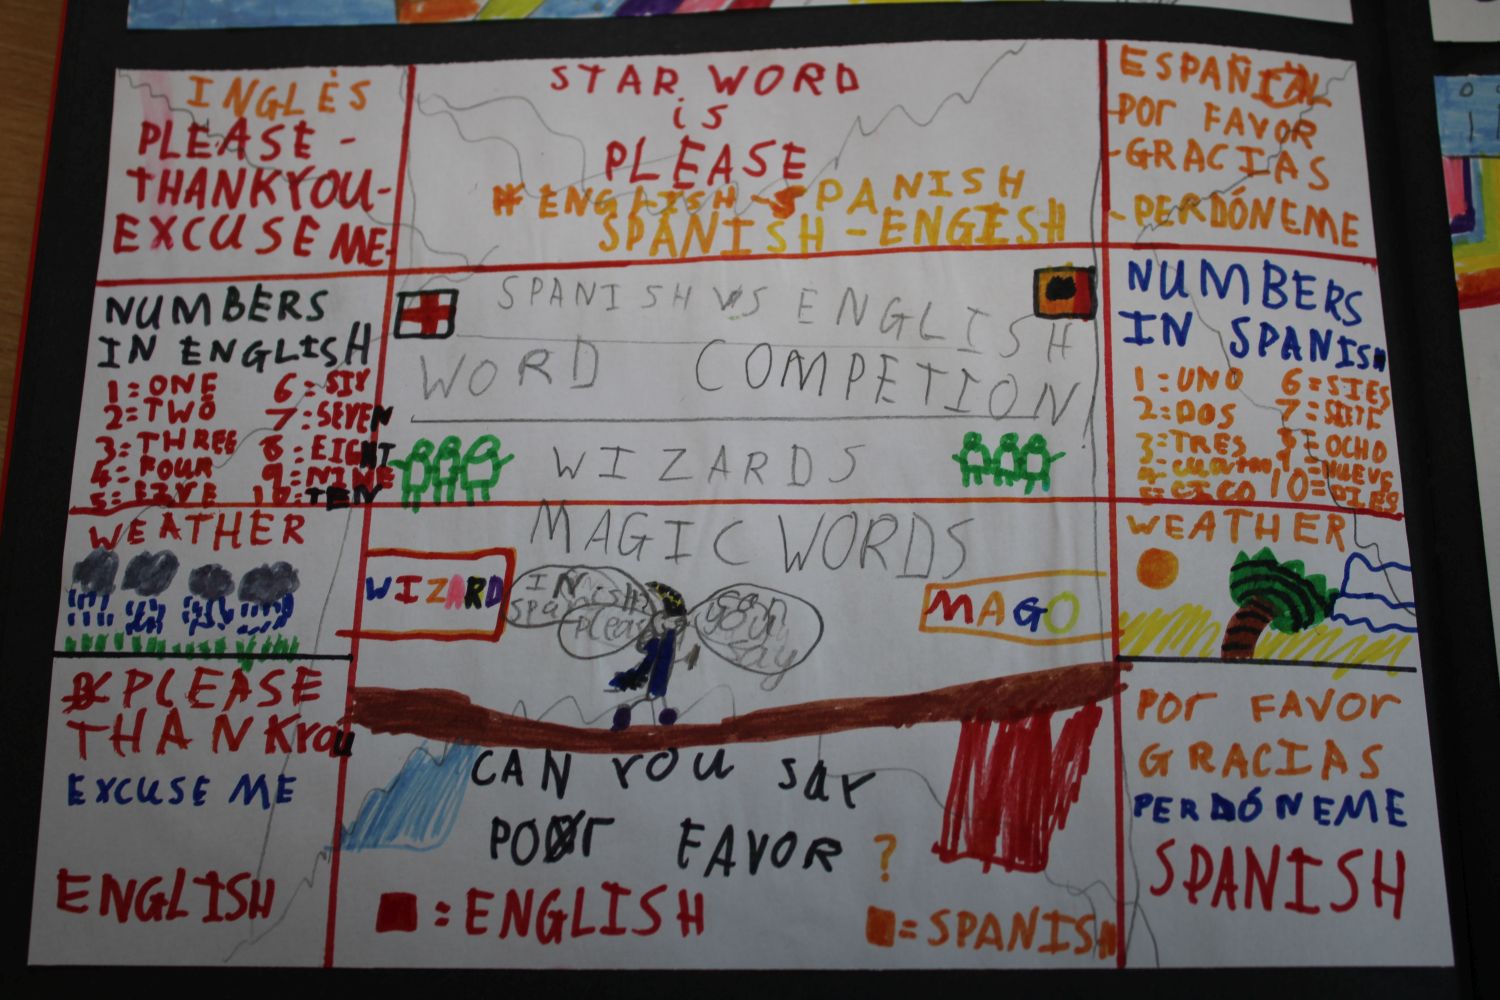 INGLÈS
PLEASE -
THANKYOU-
EXCUSE ME-
STAR WORD
is
PLEASE
* ENGLISH - SPANISH
SPANISH - ENGESH
ESPAÑIAL
-POr FAVOR
-GRACIAS
-PERDÓNEME
NUMBERS
IN ENGLISH
1=ONE 6=SIX
2=TWO 7=SEVEN
3=THREE 8=EIGHT
4=FOUR 9=NINE
5=FIVE 10=TEN
SPANISH VS ENGLISH
WORD COMPETION
WIZARDS
NUMBERS
IN SPANISH
1=UNO 6=SIES
2=DOS 7=SIETE
3=TRES 8=OCHO
4=cuatro 9=NUEVE
5=CICO 10=DIES
WEATHER
MAGIC WORDS
WIZARD
IN
please
you
say
MAGO
WEATHER
PLEASE
THANKYou
EXCUSE ME
ENGLISH
CAN YOU SAY
POr FAVOR ?
= ENGLISH
= SPANISH
POr FAVOr
GRACIAS
PERDÓNEME
SPANISH